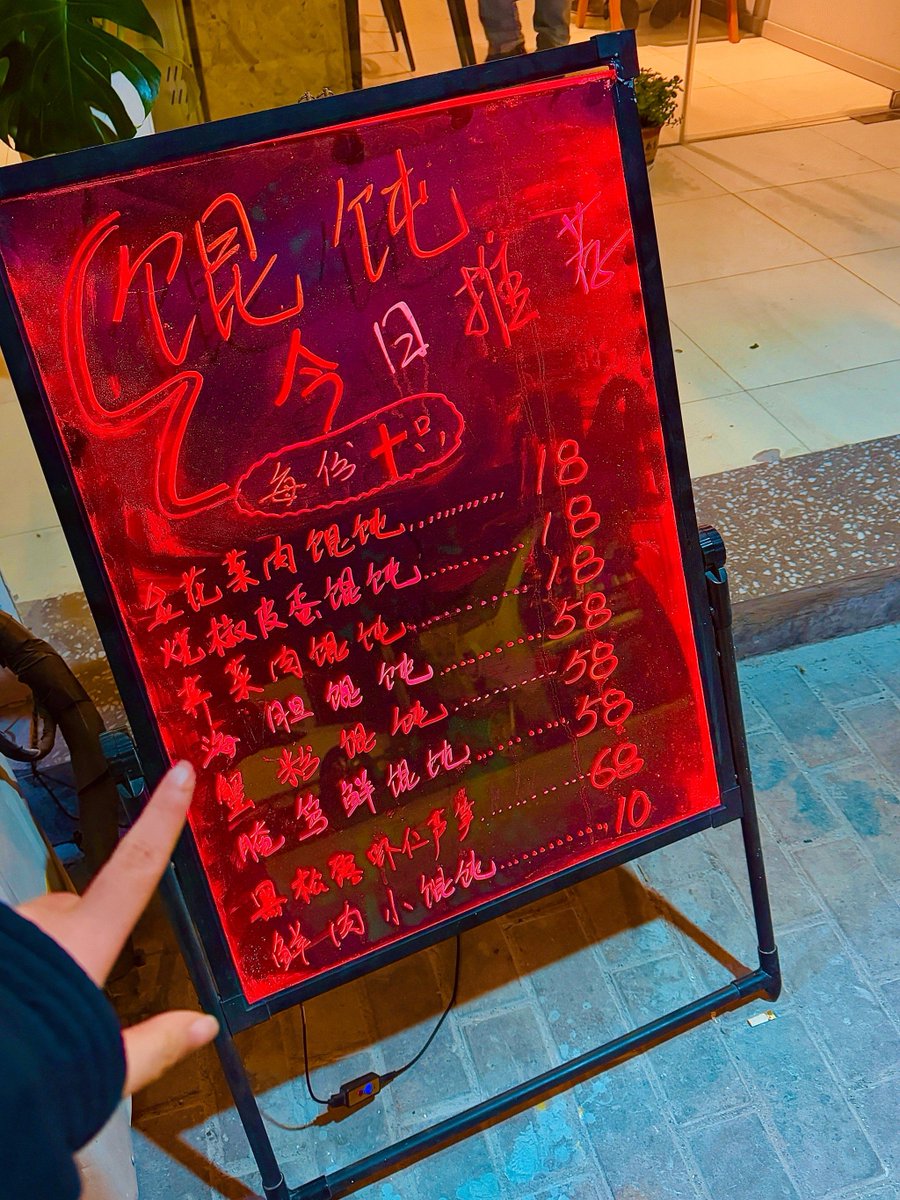 馄饨
今日推荐
每份十只
金花菜肉馄饨............18
烧椒皮蛋馄饨............18
荠菜肉馄饨............18
海胆馄饨............58
蟹粉馄饨............58
腌笃鲜馄饨............58
黑松露虾仁芦笋............68
鲜肉小馄饨............10